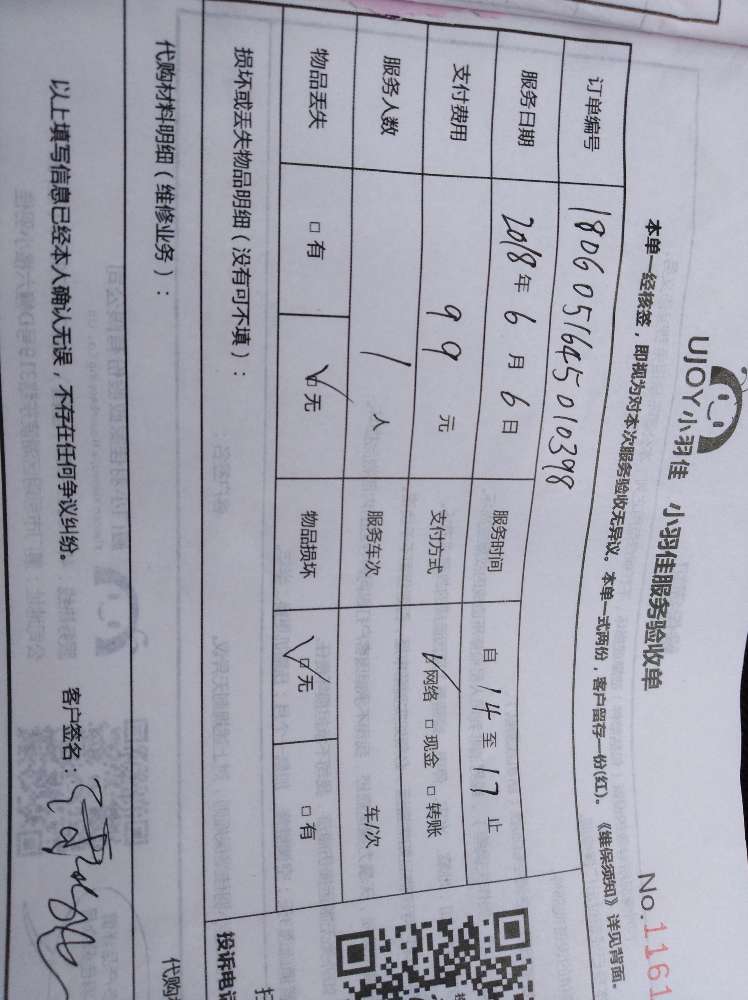 UJOY小羽佳 小羽佳服务验收单
No.1161
本单一经核签，即视为对本次服务验收无异议。本单一式两份，客户留存一份(红)。《维保须知》详见背面。
订单编号 1806051645010398
服务日期 2018年6月6日 服务时间 自14至17止
支付费用 99元 支付方式 ☑网络 □现金 □转账
服务人数 1人 服务车次 车/次
物品丢失 □有 ☑无 物品损坏 ☑无 □有
损坏或丢失物品明细（没有可不填）：
投诉电
代购材料明细（维修业务）：
代购
以上填写信息已经本人确认无误，不存在任何争议纠纷。 客户签名：